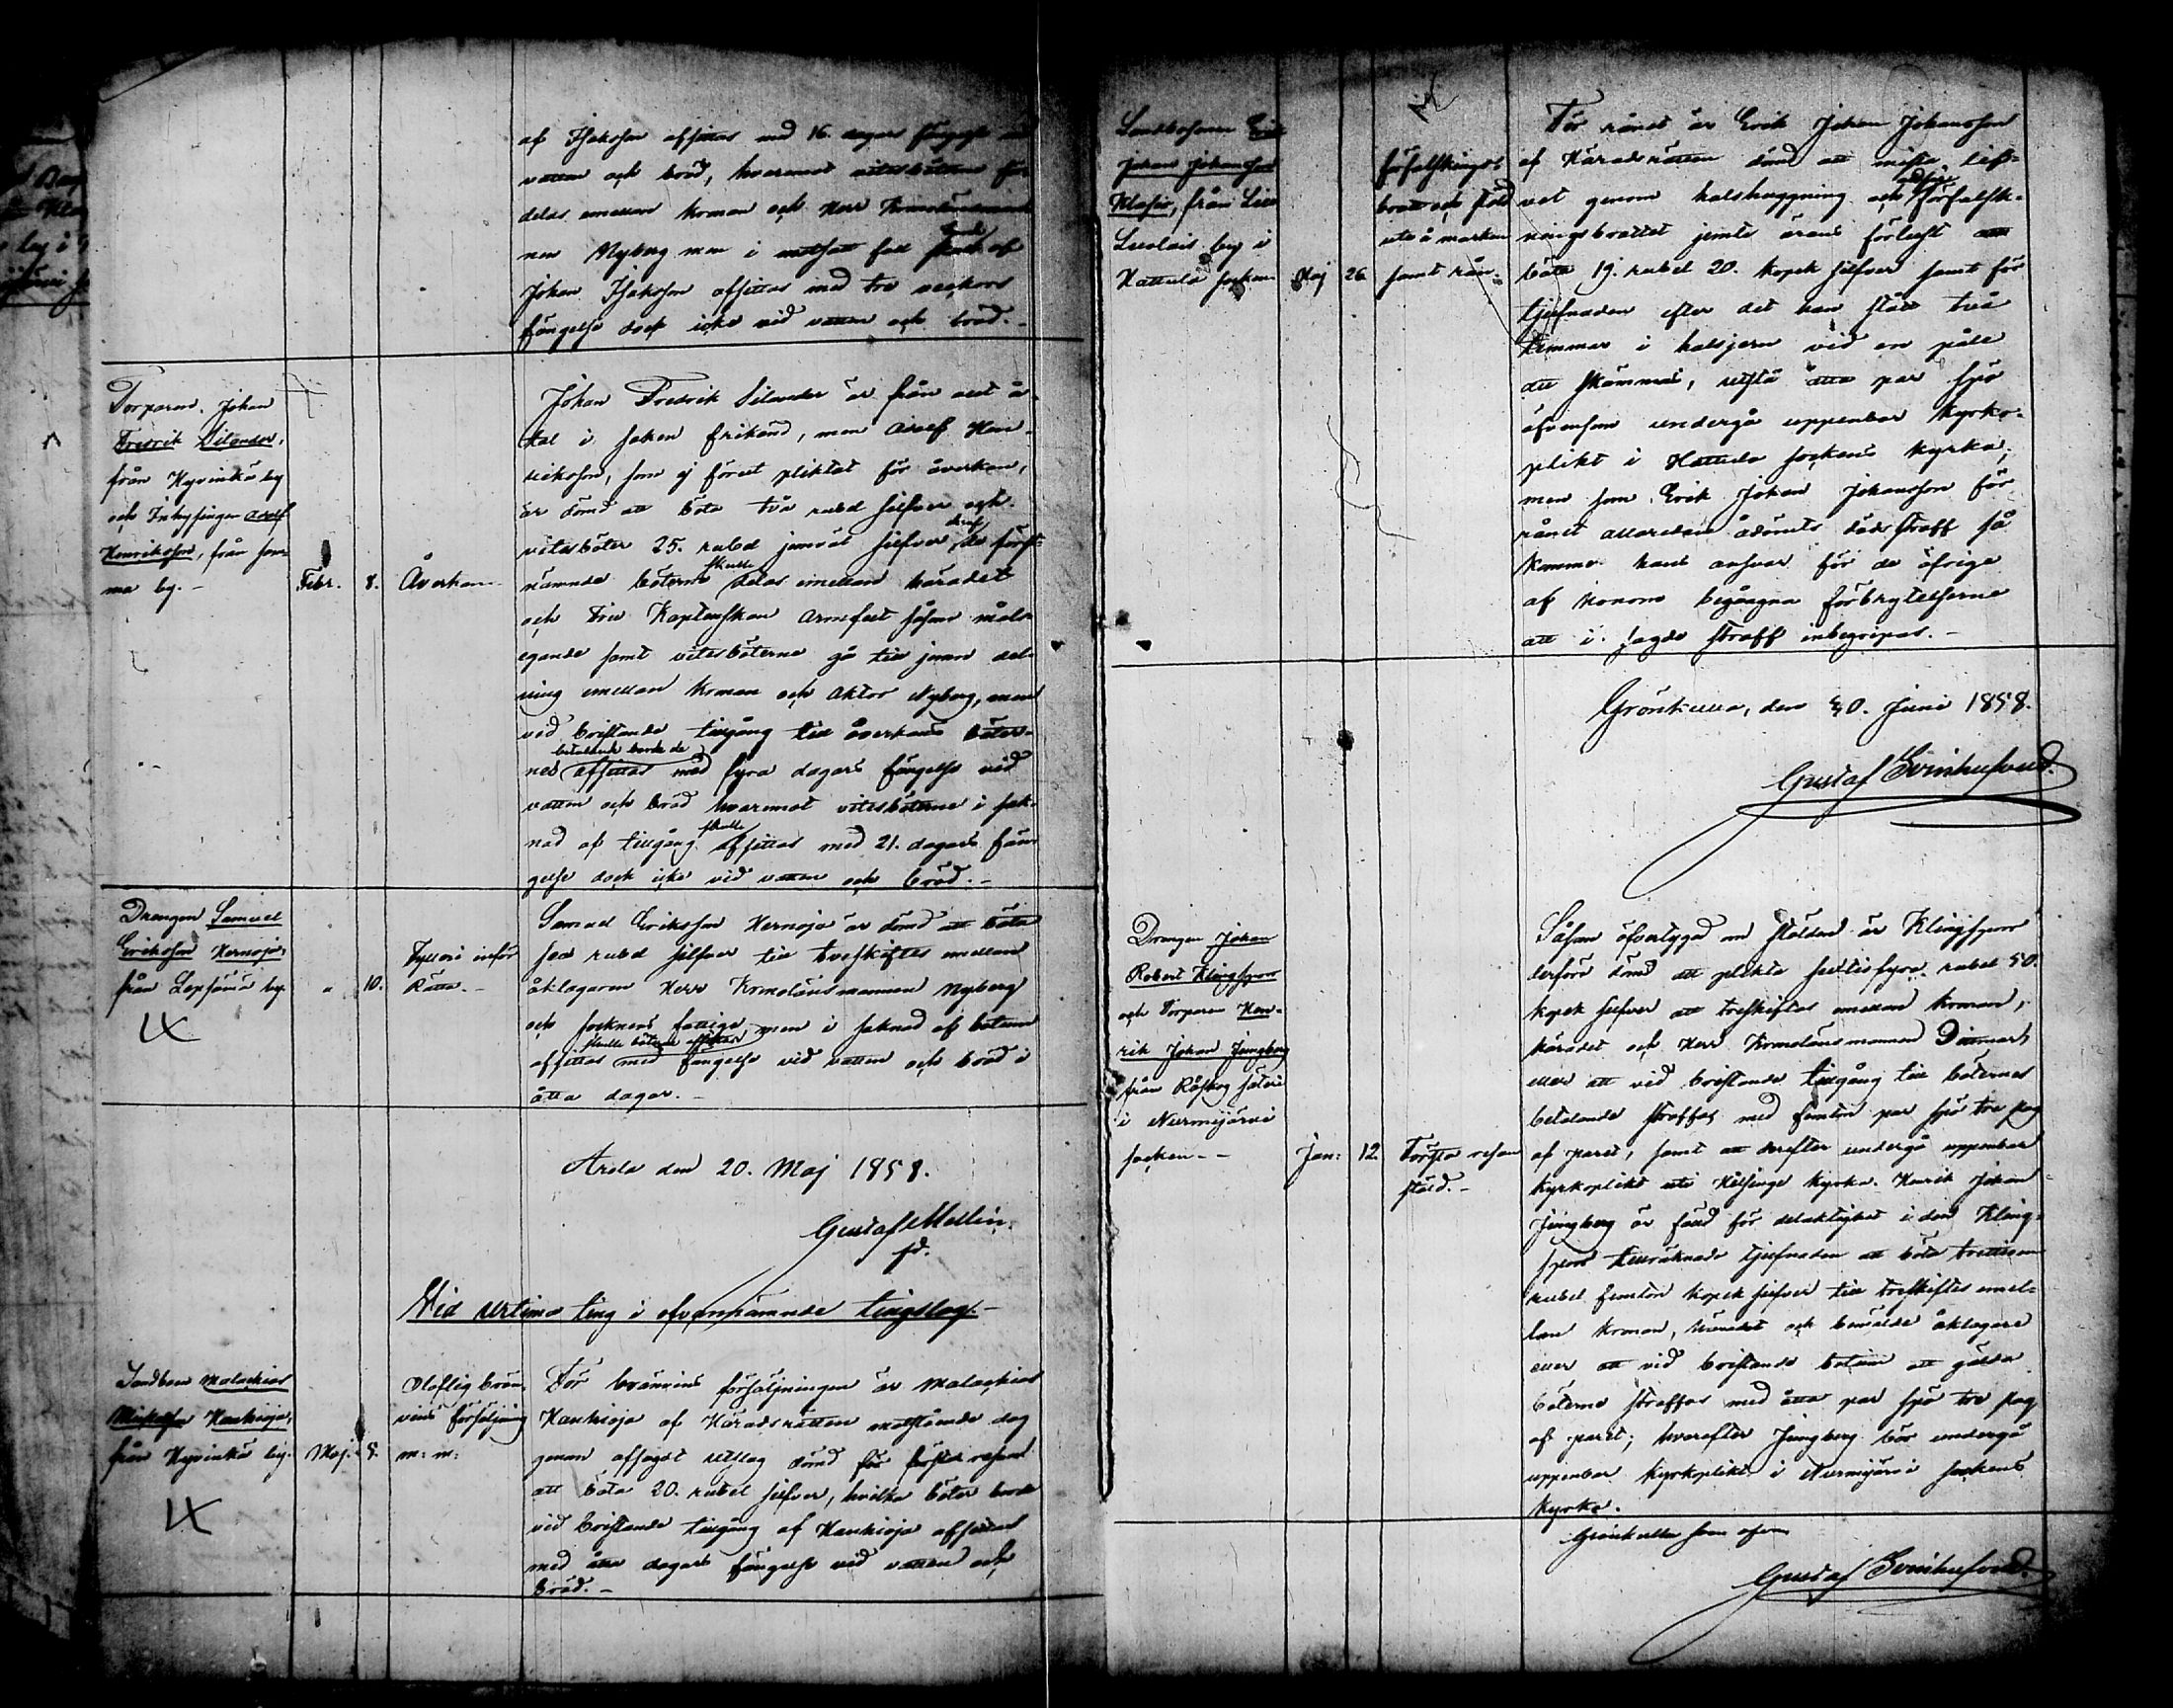 af Isaksson afsittas med 16. dagars fängelse vid
vatten och bröd, hvaremot vitesböterne för
delas emellan kronan och Herr Kronolänsman
nen Nyberg men i motsatt fall af
Johan Isaksson afsittas med tre veckors
fängelse dock icke vid vatten och bröd.-
Torparen Johan
Fredrik Silander,
från Hyvinkä by
och Inhysingen Adolf
Henriksson, från sam-
ma by.-
Febr. 8. Åverkan
Johan Fredrik Silander är från allt å-
tal i saken frikänd, men Adolf Hen-
riksson, som ej förut pliktat för åverkan,
är dömd att böta två rubel silfver och
vitesböter 25. rubel jemväl silfver, de först-
nämnde böterne skulle delas emellan häradet
och Fru Kaptenskan Armfelt såsom måls-
egande samt vitesböterne gå till jemn del-
ning emellan kronan och Aktor Nyberg, men
vid bristande tillgång till åverkans böter-
nes betalande borde de afsittas med fyra dagars fängelse vid
vatten och bröd hvaremot vitesböterne i sak-
nad af tillgång skulle afsittas med 21. dagars fän-
gelse dock icke vid vatten och bröd.-
Drängen Samuel
Eriksson Hernoja
från Lepsämä by.
" 10. Fylleri inför
Rätta.-
Samuel Eriksson Hernoja är dömd att böta
sex rubel silfver till tveskiftes emellan
åklagaren Herr Kronolänsmannen Nyberg
och socknens fattige men i saknad af botum
skulle böterne afsittas med fängelse vid vatten och bröd i
åtta dagar.-
Arela den 20. Maj 1858.
Gustaf Mellin.
fd.
Vid urtima ting i ofvannämnde tingslag.-
Landbon Malachias
Mickelsson Haukioja,
från Hyvinkä by.
Maj. 5. Olaflig brän-
vins försäljning
m: m:
För bränvins försäljningen är Malachias
Haukioja af Häradsrätten motstående dag
genom afsagdt utslag dömd för första resan
att böta 20. rubel silfver, hvilka böter borde
vid bristande tillgång af Haukioja afsittas
med åtta dagars fängelse vid vatten och
bröd.-
Landbosonen Erik
Johan Johansson
Klasis, från
by i
Hattula socken
Maj 26. förfalsknings
brott och stöld
ute å marken
samt rån.-
För rånet är Erik Johan Johansson
af Häradsrätten dömd att mista lif-
vet genom halshuggning och förfalsk-
ningsbrottet jemte ärans förlust
böta 19. rubel 20. kopek silfver samt för
tjufnaden efter det han stått två
timmar i halsjern vid en påle
att skämmas, utstå åtta par spö
äfvensom undergå uppenbar kyrko-
plikt i Hattula sockens kyrka;
men som Erik Johan Johansson för
rånet allaredan ådömts dödsstraff så
komme hans ansvar för de öfriga
af honom begångna förbrytelserna
att i sagde straff inbegripas.-
Grönkulla, den 30. Juni 1858.
Gustaf Svinhufvud.
Drängen Johan
Robert Klingspor
och Torparen Hen-
rik Johan Ljungberg
från Råskog säteri
i Nurmijärvi
socken.-
Jan: 12. Första resan
stöld.-
Såsom öfvertygad om stölden är Klingspor
derföre dömd att plikta sextiofyra rubel 50.
kopek silfver att treskiftas emellan kronan,
häradet och Herr Kronolänsmannen Dittmar,
eller att vid bristande tillgång till böternas
betalande straffas med femton par spö tre slag
af paret, samt att derefter undergå uppenbar
kyrkoplikt uti Helsinge kyrka. Henrik Johan
Ljungberg är fälld för delaktighet i den Kling-
spor tillräknade tjufnaden att böta trettioen
rubel femton kopek silfver till treskiftes emel-
lan kronan, häradet och bemälde åklagare
eller att vid bristande botum att gälda
böterne straffas med åtta par spö tre slag
af paret; hvarefter Ljungberg bör undergå
uppenbar kyrkoplikt i Nurmijärvi sockens
kyrka.
Grönkulla som ofvan
Gustaf Svinhufvud.